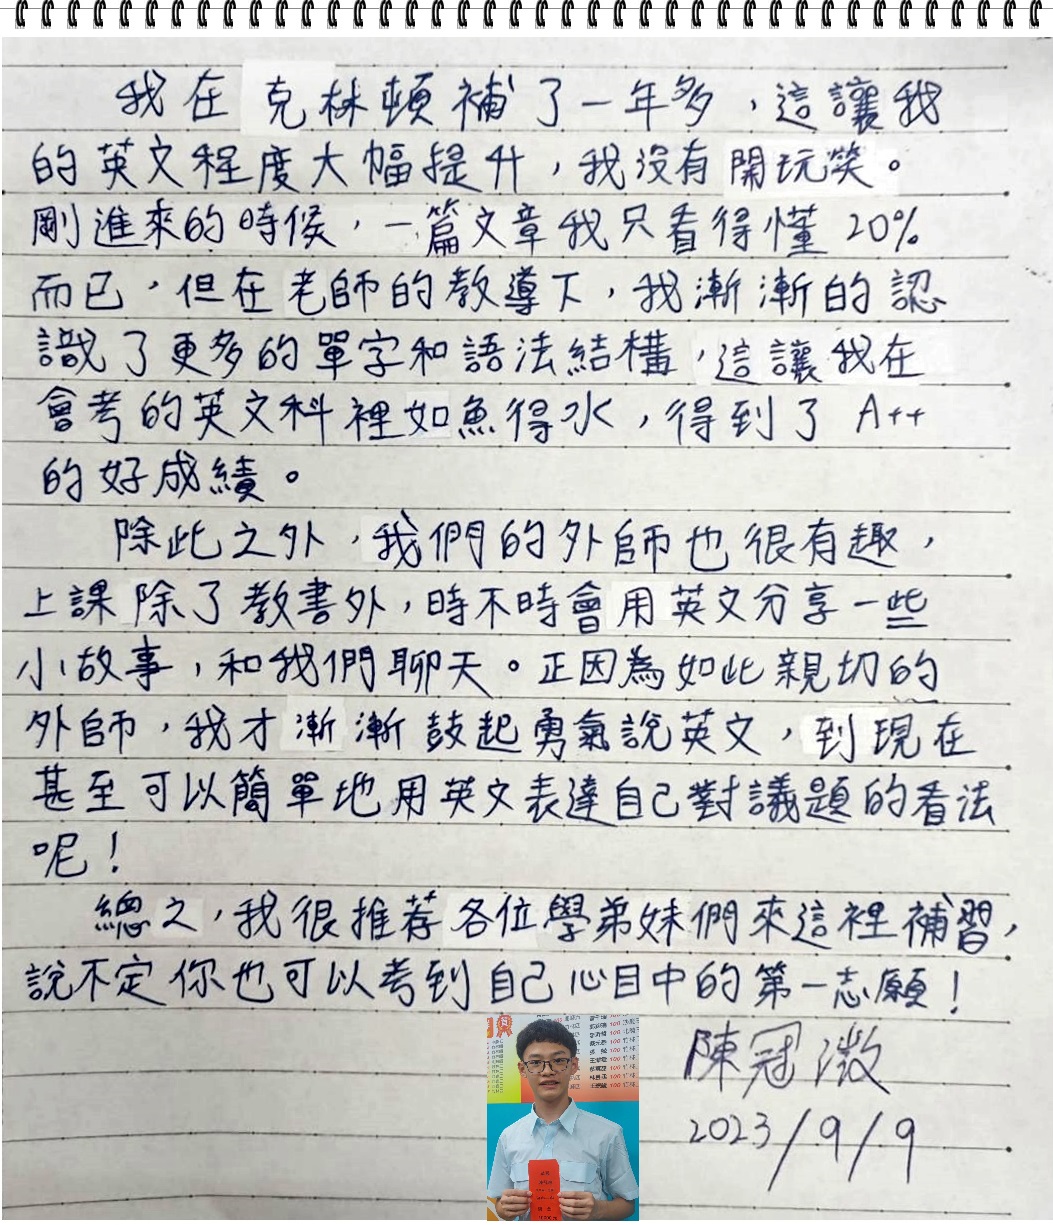 我在克林頓補了一年多，這讓我
的英文程度大幅提升，我沒有開玩笑。
剛進來的時候，一篇文章我只看得懂20%
而已，但在老師的教導下，我漸漸的認
識了更多的單字和語法結構，這讓我在
會考的英文科裡如魚得水，得到了A++
的好成績。
除此之外，我們的外師也很有趣，
上課除了教書外，時不時會用英文分享一些
小故事，和我們聊天。正因為如此親切的
外師，我才漸漸鼓起勇氣說英文，到現在
甚至可以簡單地用英文表達自己對議題的看法
呢！
總之，我很推荐各位學弟妹們來這裡補習，
說不定你也可以考到自己心目中的第一志願！
陳冠澂
2023/9/9